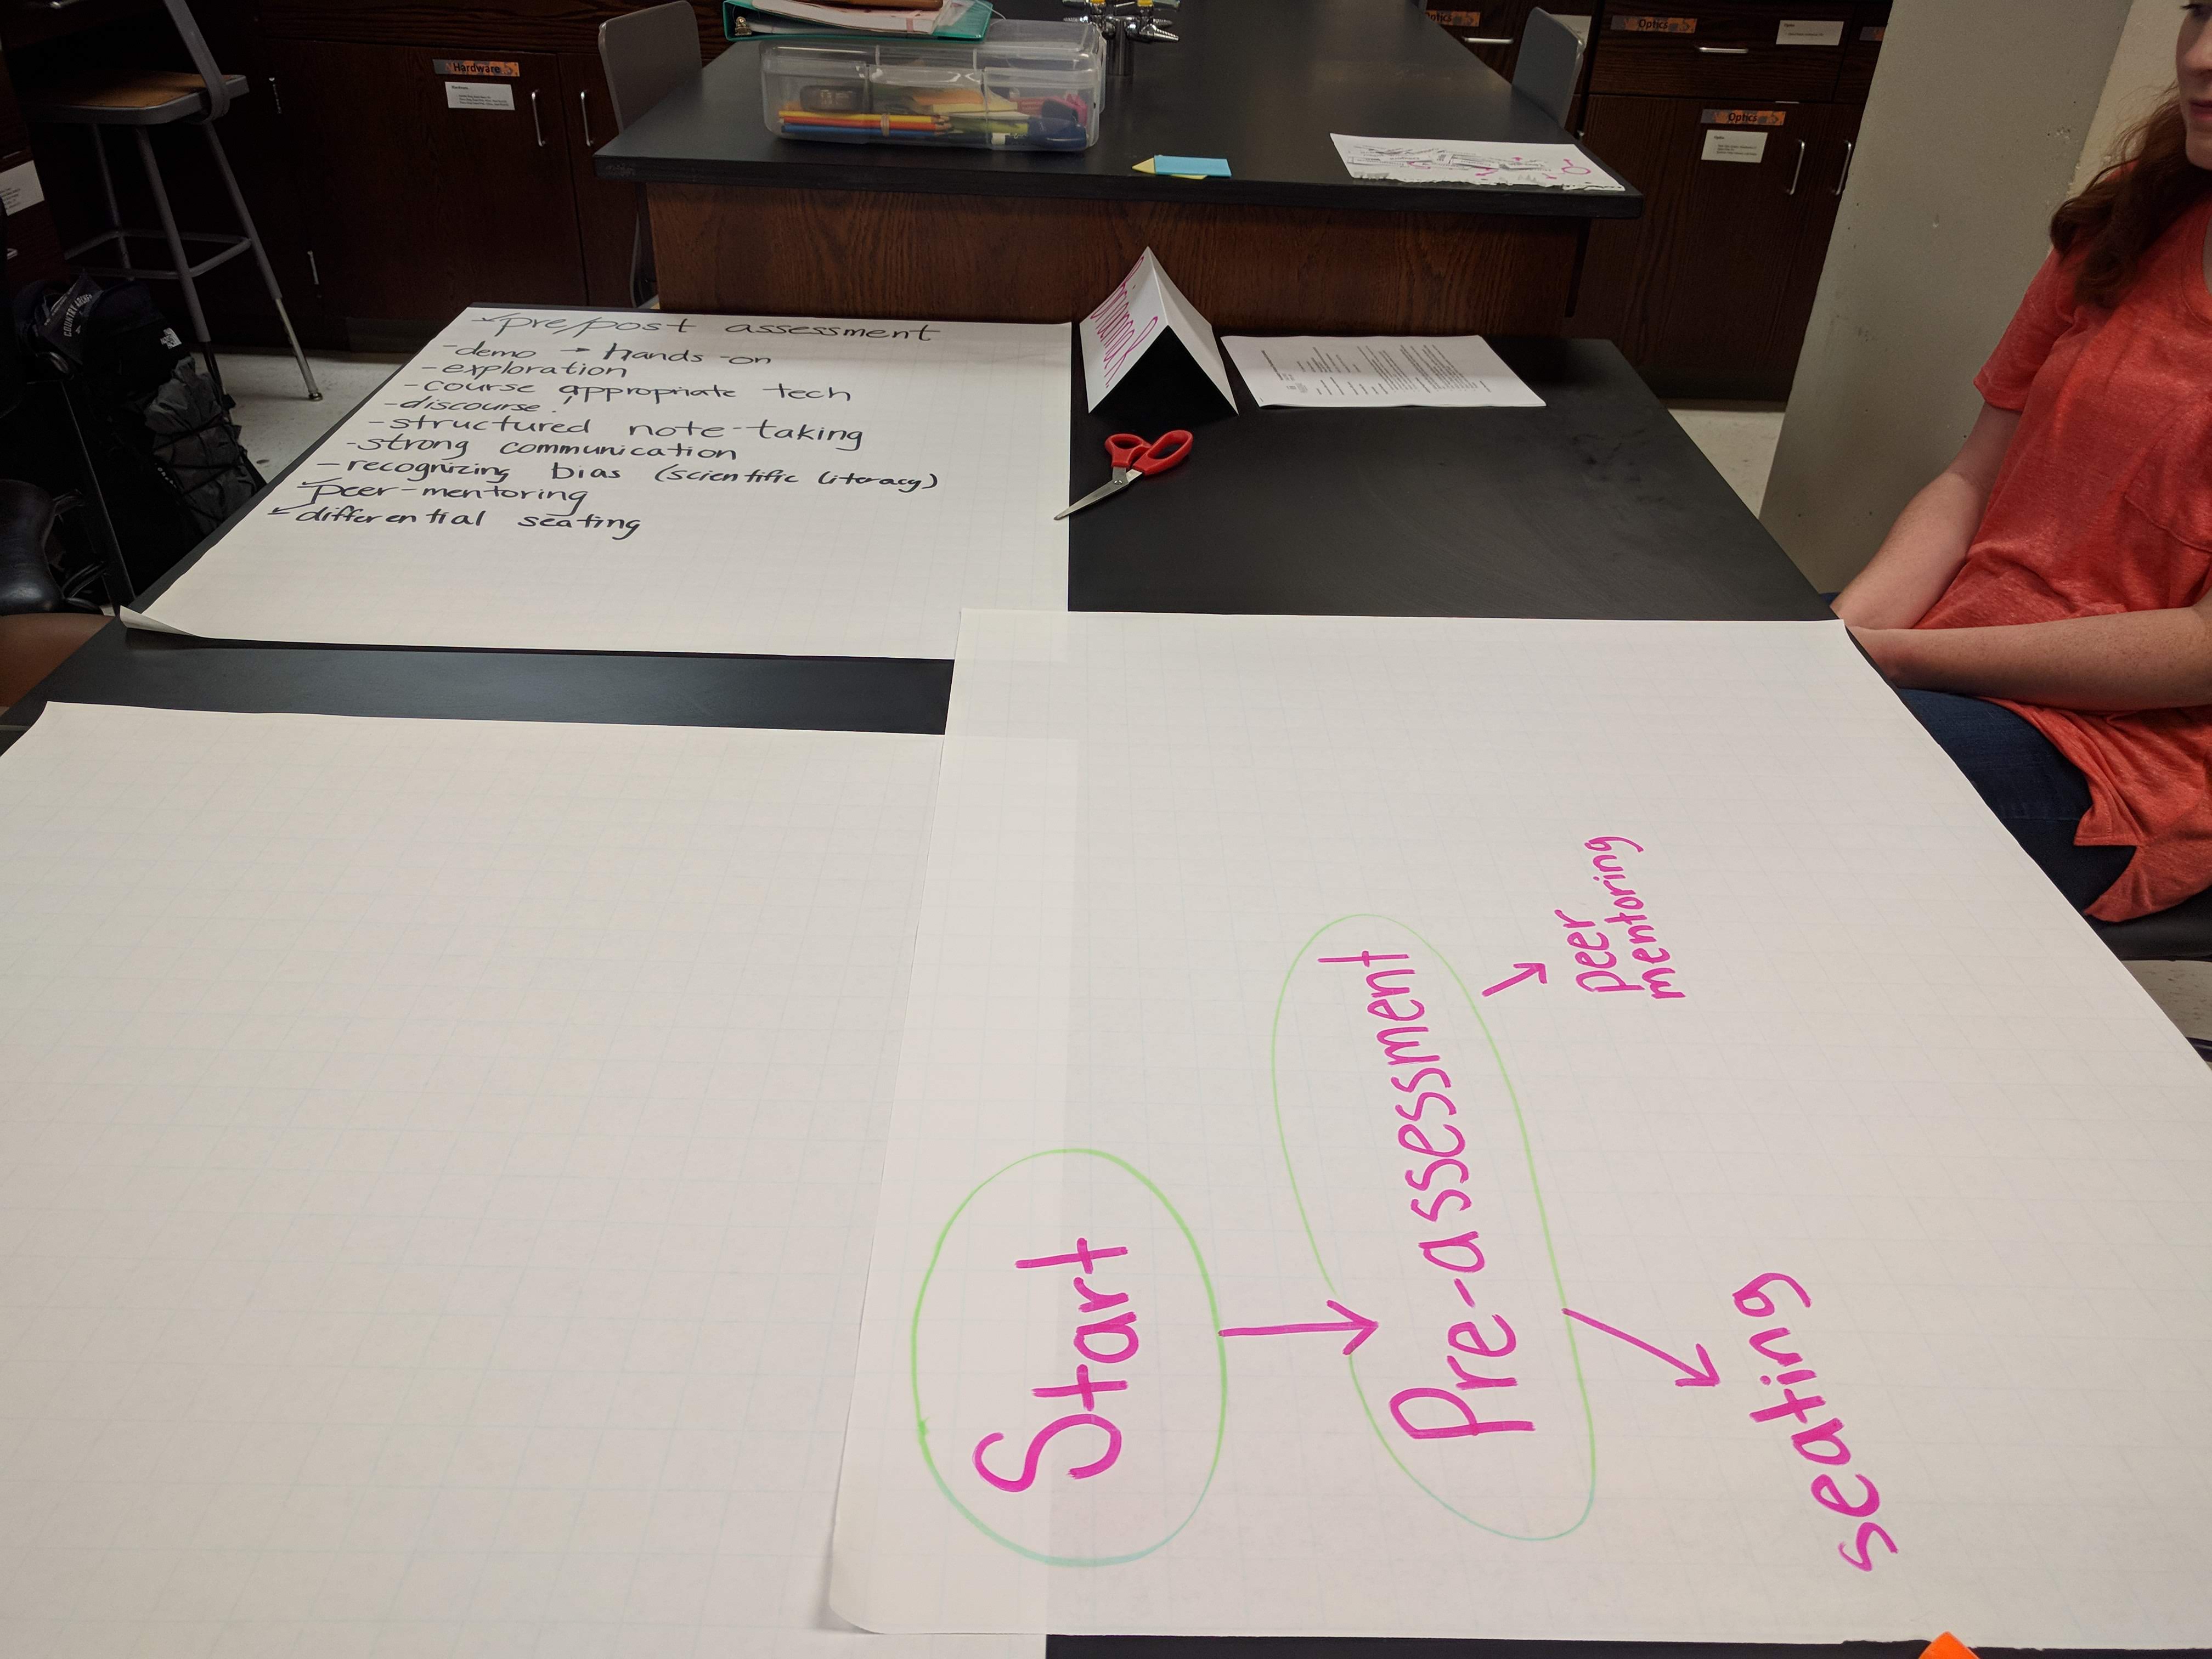 Hardware
Optics
Optics
Optics
✓pre/post assessment
-demo → hands-on
-exploration
-course appropriate tech
-discourse!
-structured note-taking
-strong communication
-recognizing bias (scientific literacy)
✓peer-mentoring
✓differential seating
COUNTRY ARCHER
Start
Pre-assessment
peer
mentoring
seating